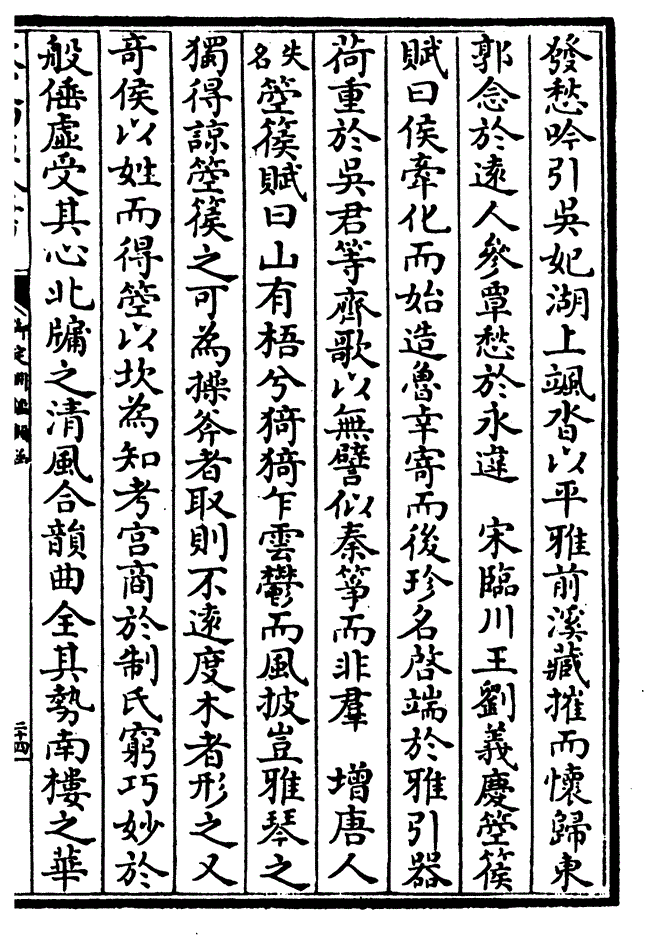 發愁吟引吳妃湖上颯沓以平雅前溪藏摧而懷歸東
郭念於遠人參覃愁於永違　宋臨川王劉義慶箜篌
賦曰侯牽化而始造魯幸寄而後珍名啓端於雅引器
荷重於吳君等齊歌以無譬似秦箏而非羣　增唐人
失名箜篌賦曰山有梧兮猗猗乍雲鬱而風披豈雅琴之
獨得諒箜篌之可為操斧者取則不遠度木者形之又
奇侯以姓而得箜以坎為知考宫商於制氏窮巧妙於
般倕虚受其心北牖之清風合韻曲全其勢南樓之華
御定淵鑑類函
二十四